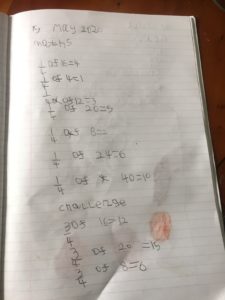 May 202
maths
1/4 of 16=4
1/4 of 4=1
1/4 of 12=3
1/4 of 20=5
1/4 of 8=2
1/4 of 24=6
1/4 of 40=10
challenge
3/4 of 16=12
3/4 of 20=15
3/4 of 8=6